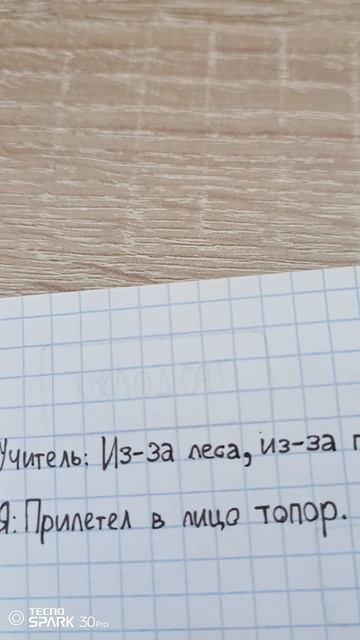 Учитель: Из-за леса, из-за
Я: Прилетел в лицо топор.
TECNO
SPARK 30Pro